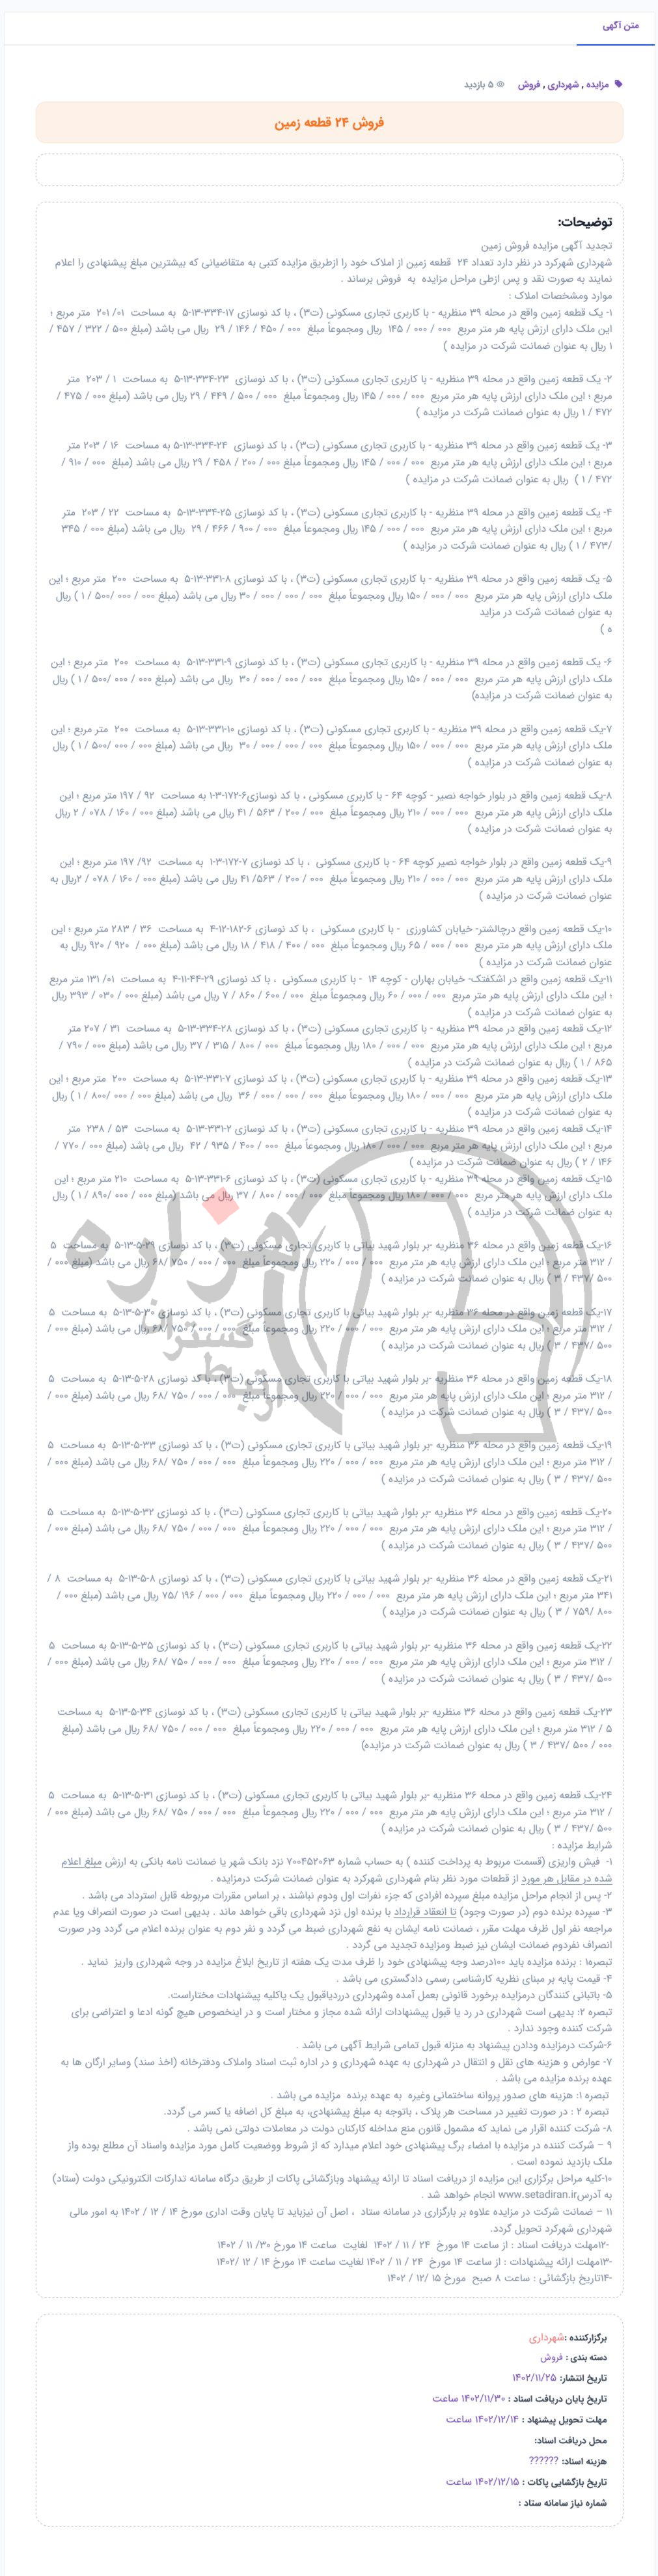 متن آگهی
مزایده , شهرداری , فروش ۵ بازدید
فروش ۲۴ قطعه زمین
توضیحات:
تجدید آگهی مزایده فروش زمین
شهرداری شهرکرد در نظر دارد تعداد ۲۴ قطعه زمین از املاک خود را ازطریق مزایده کتبی به متقاضیانی که بیشترین مبلغ پیشنهادی را اعلام
نمایند به صورت نقد و پس ازطی مراحل مزایده به فروش برساند .
موارد ومشخصات املاک :
۱- یک قطعه زمین واقع در محله ۳۹ منظریه - با کاربری تجاری مسکونی (ت۳) ، با کد نوسازی ۱۷-۳۳۴-۱۳-۵ به مساحت ۰۱/ ۲۰۱ متر مربع ؛
این ملک دارای ارزش پایه هر متر مربع ۰۰۰ / ۰۰۰ / ۱۴۵ ریال ومجموعاً مبلغ ۰۰۰ / ۴۵۰ / ۱۴۶ / ۲۹ ریال می باشد (مبلغ ۵۰۰ / ۳۲۲ / ۴۵۷ /
۱ ریال به عنوان ضمانت شرکت در مزایده )
۲- یک قطعه زمین واقع در محله ۳۹ منظریه - با کاربری تجاری مسکونی (ت۳) ، با کد نوسازی ۲۳-۳۳۴-۱۳-۵ به مساحت ۱ / ۲۰۳ متر
مربع ؛ این ملک دارای ارزش پایه هر متر مربع ۰۰۰ / ۰۰۰ / ۱۴۵ ریال ومجموعاً مبلغ ۰۰۰ / ۵۰۰ / ۴۴۹ / ۲۹ ریال می باشد (مبلغ ۰۰۰ / ۴۷۵ /
۴۷۲ / ۱ ریال به عنوان ضمانت شرکت در مزایده )
۳- یک قطعه زمین واقع در محله ۳۹ منظریه - با کاربری تجاری مسکونی (ت۳) ، با کد نوسازی ۲۴-۳۳۴-۱۳-۵ به مساحت ۱۶ / ۲۰۳ متر
مربع ؛ این ملک دارای ارزش پایه هر متر مربع ۰۰۰ / ۰۰۰ / ۱۴۵ ریال ومجموعاً مبلغ ۰۰۰ / ۲۰۰ / ۴۵۸ / ۲۹ ریال می باشد (مبلغ ۰۰۰ / ۹۱۰ /
۴۷۲ / ۱ ) ریال به عنوان ضمانت شرکت در مزایده )
۴- یک قطعه زمین واقع در محله ۳۹ منظریه - با کاربری تجاری مسکونی (ت۳) ، با کد نوسازی ۲۵-۳۳۴-۱۳-۵ به مساحت ۲۲ / ۲۰۳ متر
مربع ؛ این ملک دارای ارزش پایه هر متر مربع ۰۰۰ / ۰۰۰ / ۱۴۵ ریال ومجموعاً مبلغ ۰۰۰ / ۹۰۰ / ۴۶۶ / ۲۹ ریال می باشد (مبلغ ۰۰۰ / ۳۴۵
/۴۷۳ / ۱ ) ریال به عنوان ضمانت شرکت در مزایده )
۵- یک قطعه زمین واقع در محله ۳۹ منظریه - با کاربری تجاری مسکونی (ت۳) ، با کد نوسازی ۸-۳۳۱-۱۳-۵ به مساحت ۲۰۰ متر مربع ؛ این
ملک دارای ارزش پایه هر متر مربع ۰۰۰ / ۰۰۰ / ۱۵۰ ریال ومجموعاً مبلغ ۰۰۰ / ۰۰۰ / ۰۰۰ / ۳۰ ریال می باشد (مبلغ ۰۰۰ / ۰۰۰ /۵۰۰ / ۱ ) ریال
به عنوان ضمانت شرکت در مزاید
ه )
۶- یک قطعه زمین واقع در محله ۳۹ منظریه - با کاربری تجاری مسکونی (ت۳) ، با کد نوسازی ۹-۳۳۱-۱۳-۵ به مساحت ۲۰۰ متر مربع ؛ این
ملک دارای ارزش پایه هر متر مربع ۰۰۰ / ۰۰۰ / ۱۵۰ ریال ومجموعاً مبلغ ۰۰۰ / ۰۰۰ / ۰۰۰ / ۳۰ ریال می باشد (مبلغ ۰۰۰ / ۰۰۰ /۵۰۰ / ۱ ) ریال
به عنوان ضمانت شرکت در مزایده)
۷-یک قطعه زمین واقع در محله ۳۹ منظریه - با کاربری تجاری مسکونی (ت۳) ، با کد نوسازی ۱۰-۳۳۱-۱۳-۵ به مساحت ۲۰۰ متر مربع ؛ این
ملک دارای ارزش پایه هر متر مربع ۰۰۰ / ۰۰۰ / ۱۵۰ ریال ومجموعاً مبلغ ۰۰۰ / ۰۰۰ / ۰۰۰ / ۳۰ ریال می باشد (مبلغ ۰۰۰ / ۰۰۰ /۵۰۰ / ۱ ) ریال
به عنوان ضمانت شرکت در مزایده )
۸-یک قطعه زمین واقع در بلوار خواجه نصیر - کوچه ۶۴ - با کاربری مسکونی ، با کد نوسازی۶-۱۷۲-۳-۱ به مساحت ۹۲ / ۱۹۷ متر مربع ؛ این
ملک دارای ارزش پایه هر متر مربع ۰۰۰ / ۰۰۰ / ۲۱۰ ریال ومجموعاً مبلغ ۰۰۰ / ۲۰۰ / ۵۶۳ / ۴۱ ریال می باشد (مبلغ ۰۰۰ / ۱۶۰ / ۰۷۸ / ۲ ریال
به عنوان ضمانت شرکت در مزایده )
۹-یک قطعه زمین واقع در بلوار خواجه نصیر کوچه ۶۴ - با کاربری مسکونی ، با کد نوسازی ۷-۱۷۲-۳-۱ به مساحت ۹۲/ ۱۹۷ متر مربع ؛ این
ملک دارای ارزش پایه هر متر مربع ۰۰۰ / ۰۰۰ / ۲۱۰ ریال ومجموعاً مبلغ ۰۰۰ / ۲۰۰ / ۵۶۳/ ۴۱ ریال می باشد (مبلغ ۰۰۰ / ۱۶۰ / ۰۷۸ / ۲ریال به
عنوان ضمانت شرکت در مزایده )
۱۰-یک قطعه زمین واقع درچالشتر- خیابان کشاورزی - با کاربری مسکونی ، با کد نوسازی ۶-۱۸۲-۱۲-۴ به مساحت ۳۶ / ۲۸۳ متر مربع ؛ این
ملک دارای ارزش پایه هر متر مربع ۰۰۰ / ۰۰۰ / ۶۵ ریال ومجموعاً مبلغ ۰۰۰ / ۴۰۰ / ۴۱۸ / ۱۸ ریال می باشد (مبلغ ۰۰۰ / ۹۲۰ / ۹۲۰ ریال به
عنوان ضمانت شرکت در مزایده )
۱۱-یک قطعه زمین واقع در اشکفتک- خیابان بهاران - کوچه ۱۴ - با کاربری مسکونی ، با کد نوسازی ۲۹-۴۴-۱۱-۴ به مساحت ۰۱/ ۱۳۱ متر مربع
؛ این ملک دارای ارزش پایه هر متر مربع ۰۰۰ / ۰۰۰ / ۶۰ ریال ومجموعاً مبلغ ۰۰۰ / ۶۰۰ / ۸۶۰ / ۷ ریال می باشد (مبلغ ۰۰۰ / ۰۳۰ / ۳۹۳ ریال
به عنوان ضمانت شرکت در مزایده )
۱۲-یک قطعه زمین واقع در محله ۳۹ منظریه - با کاربری تجاری مسکونی (ت۳) ، با کد نوسازی ۲۸-۳۳۴-۱۳-۵ به مساحت ۳۱ / ۲۰۷ متر
مربع ؛ این ملک دارای ارزش پایه هر متر مربع ۰۰۰ / ۰۰۰ / ۱۸۰ ریال ومجموعاً مبلغ ۰۰۰ / ۸۰۰ / ۳۱۵ / ۳۷ ریال می باشد (مبلغ ۰۰۰ / ۷۹۰ /
۸۶۵ / ۱ ) ریال به عنوان ضمانت شرکت در مزایده )
۱۳-یک قطعه زمین واقع در محله ۳۹ منظریه - با کاربری تجاری مسکونی (ت۳) ، با کد نوسازی ۷-۳۳۱-۱۳-۵ به مساحت ۲۰۰ متر مربع ؛ این
ملک دارای ارزش پایه هر متر مربع ۰۰۰ / ۰۰۰ / ۱۸۰ ریال ومجموعاً مبلغ ۰۰۰ / ۰۰۰ / ۰۰۰ / ۳۶ ریال می باشد (مبلغ ۰۰۰ / ۰۰۰ /۸۰۰ / ۱ ) ریال
به عنوان ضمانت شرکت در مزایده )
۱۴-یک قطعه زمین واقع در محله ۳۹ منظریه - با کاربری تجاری مسکونی (ت۳) ، با کد نوسازی ۲-۳۳۱-۱۳-۵ به مساحت ۵۳ / ۲۳۸ متر
مربع ؛ این ملک دارای ارزش پایه هر متر مربع ۰۰۰ / ۰۰۰ / ۱۸۰ ریال ومجموعاً مبلغ ۰۰۰ / ۴۰۰ / ۹۳۵ / ۴۲ ریال می باشد (مبلغ ۰۰۰ / ۷۷۰ /
۱۴۶ / ۲ ) ریال به عنوان ضمانت شرکت در مزایده )
۱۵-یک قطعه زمین واقع در محله ۳۹ منظریه - با کاربری تجاری مسکونی (ت۳) ، با کد نوسازی ۶-۳۳۱-۱۳-۵ به مساحت ۲۱۰ متر مربع ؛ این
ملک دارای ارزش پایه هر متر مربع ۰۰۰ / ۰۰۰ / ۱۸۰ ریال ومجموعاً مبلغ ۰۰۰ / ۰۰۰ / ۸۰۰ / ۳۷ ریال می باشد (مبلغ ۰۰۰ / ۰۰۰ /۸۹۰ / ۱ ) ریال
به عنوان ضمانت شرکت در مزایده )
۱۶-یک قطعه زمین واقع در محله ۳۶ منظریه -بر بلوار شهید بیاتی با کاربری تجاری مسکونی (ت۳) ، با کد نوسازی ۲۹-۵-۱۳-۵ به مساحت ۵
/ ۳۱۲ متر مربع ؛ این ملک دارای ارزش پایه هر متر مربع ۰۰۰ / ۰۰۰ / ۲۲۰ ریال ومجموعاً مبلغ ۰۰۰ / ۰۰۰ / ۷۵۰ /۶۸ ریال می باشد (مبلغ ۰۰۰ /
۵۰۰ /۴۳۷ / ۳ ) ریال به عنوان ضمانت شرکت در مزایده )
۱۷-یک قطعه زمین واقع در محله ۳۶ منظریه -بر بلوار شهید بیاتی با کاربری تجاری مسکونی (ت۳) ، با کد نوسازی ۳۰-۵-۱۳-۵ به مساحت ۵
/ ۳۱۲ متر مربع ؛ این ملک دارای ارزش پایه هر متر مربع ۰۰۰ / ۰۰۰ / ۲۲۰ ریال ومجموعاً مبلغ ۰۰۰ / ۰۰۰ / ۷۵۰ /۶۸ ریال می باشد (مبلغ ۰۰۰ /
۵۰۰ /۴۳۷ / ۳ ) ریال به عنوان ضمانت شرکت در مزایده )
۱۸-یک قطعه زمین واقع در محله ۳۶ منظریه -بر بلوار شهید بیاتی با کاربری تجاری مسکونی (ت۳) ، با کد نوسازی ۲۸-۵-۱۳-۵ به مساحت ۵
/ ۳۱۲ متر مربع ؛ این ملک دارای ارزش پایه هر متر مربع ۰۰۰ / ۰۰۰ / ۲۲۰ ریال ومجموعاً مبلغ ۰۰۰ / ۰۰۰ / ۷۵۰ /۶۸ ریال می باشد (مبلغ ۰۰۰ /
۵۰۰ /۴۳۷ / ۳ ) ریال به عنوان ضمانت شرکت در مزایده )
۱۹-یک قطعه زمین واقع در محله ۳۶ منظریه -بر بلوار شهید بیاتی با کاربری تجاری مسکونی (ت۳) ، با کد نوسازی ۳۳-۵-۱۳-۵ به مساحت ۵
/ ۳۱۲ متر مربع ؛ این ملک دارای ارزش پایه هر متر مربع ۰۰۰ / ۰۰۰ / ۲۲۰ ریال ومجموعاً مبلغ ۰۰۰ / ۰۰۰ / ۷۵۰ /۶۸ ریال می باشد (مبلغ ۰۰۰ /
۵۰۰ /۴۳۷ / ۳ ) ریال به عنوان ضمانت شرکت در مزایده )
۲۰-یک قطعه زمین واقع در محله ۳۶ منظریه -بر بلوار شهید بیاتی با کاربری تجاری مسکونی (ت۳) ، با کد نوسازی ۳۲-۵-۱۳-۵ به مساحت ۵
/ ۳۱۲ متر مربع ؛ این ملک دارای ارزش پایه هر متر مربع ۰۰۰ / ۰۰۰ / ۲۲۰ ریال ومجموعاً مبلغ ۰۰۰ / ۰۰۰ / ۷۵۰ /۶۸ ریال می باشد (مبلغ ۰۰۰ /
۵۰۰ /۴۳۷ / ۳ ) ریال به عنوان ضمانت شرکت در مزایده )
۲۱-یک قطعه زمین واقع در محله ۳۶ منظریه -بر بلوار شهید بیاتی با کاربری تجاری مسکونی (ت۳) ، با کد نوسازی ۸-۵-۱۳-۵ به مساحت ۸ /
۳۴۱ متر مربع ؛ این ملک دارای ارزش پایه هر متر مربع ۰۰۰ / ۰۰۰ / ۲۲۰ ریال ومجموعاً مبلغ ۰۰۰ / ۰۰۰ / ۱۹۶ /۷۵ ریال می باشد (مبلغ ۰۰۰ /
۸۰۰ /۷۵۹ / ۳ ) ریال به عنوان ضمانت شرکت در مزایده )
۲۲-یک قطعه زمین واقع در محله ۳۶ منظریه -بر بلوار شهید بیاتی با کاربری تجاری مسکونی (ت۳) ، با کد نوسازی ۳۵-۵-۱۳-۵ به مساحت ۵
/ ۳۱۲ متر مربع ؛ این ملک دارای ارزش پایه هر متر مربع ۰۰۰ / ۰۰۰ / ۲۲۰ ریال ومجموعاً مبلغ ۰۰۰ / ۰۰۰ / ۷۵۰ /۶۸ ریال می باشد (مبلغ ۰۰۰ /
۵۰۰ /۴۳۷ / ۳ ) ریال به عنوان ضمانت شرکت در مزایده )
۲۳-یک قطعه زمین واقع در محله ۳۶ منظریه -بر بلوار شهید بیاتی با کاربری تجاری مسکونی (ت۳) ، با کد نوسازی ۳۴-۵-۱۳-۵ به مساحت
۵ / ۳۱۲ متر مربع ؛ این ملک دارای ارزش پایه هر متر مربع ۰۰۰ / ۰۰۰ / ۲۲۰ ریال ومجموعاً مبلغ ۰۰۰ / ۰۰۰ / ۷۵۰ /۶۸ ریال می باشد (مبلغ
۰۰۰ / ۵۰۰ /۴۳۷ / ۳ ) ریال به عنوان ضمانت شرکت در مزایده)
۲۴-یک قطعه زمین واقع در محله ۳۶ منظریه -بر بلوار شهید بیاتی با کاربری تجاری مسکونی (ت۳) ، با کد نوسازی ۳۱-۵-۱۳-۵ به مساحت ۵
/ ۳۱۲ متر مربع ؛ این ملک دارای ارزش پایه هر متر مربع ۰۰۰ / ۰۰۰ / ۲۲۰ ریال ومجموعاً مبلغ ۰۰۰ / ۰۰۰ / ۷۵۰ /۶۸ ریال می باشد (مبلغ ۰۰۰ /
۵۰۰ /۴۳۷ / ۳ ) ریال به عنوان ضمانت شرکت در مزایده )
شرایط مزایده :
۱- فیش واریزی (قسمت مربوط به پرداخت کننده ) به حساب شماره ۷۰۰۴۵۲۰۶۳ نزد بانک شهر یا ضمانت نامه بانکی به ارزش مبلغ اعلام
شده در مقابل هر مورد از قطعات مورد نظر بنام شهرداری شهرکرد به عنوان ضمانت شرکت درمزایده .
۲- پس از انجام مراحل مزایده مبلغ سپرده افرادی که جزء نفرات اول ودوم نباشند ، بر اساس مقررات مربوطه قابل استرداد می باشد .
۳- سپرده برنده دوم (در صورت وجود) تا انعقاد قرارداد با برنده اول نزد شهرداری باقی خواهد ماند . بدیهی است در صورت انصراف ویا عدم
مراجعه نفر اول ظرف مهلت مقرر ، ضمانت نامه ایشان به نفع شهرداری ضبط می گردد و نفر دوم به عنوان برنده اعلام می گردد ودر صورت
انصراف نفردوم ضمانت ایشان نیز ضبط ومزایده تجدید می گردد .
تبصره۱ : برنده مزایده باید ۱۰۰درصد وجه پیشنهادی خود را ظرف مدت یک هفته از تاریخ ابلاغ مزایده در وجه شهرداری واریز نماید .
۴- قیمت پایه بر مبنای نظریه کارشناسی رسمی دادگستری می باشد .
۵- باتبانی کنندگان درمزایده برخورد قانونی بعمل آمده وشهرداری درردیاقبول یک یاکلیه پیشنهادات مختاراست.
تبصره ۲: بدیهی است شهرداری در رد یا قبول پیشنهادات ارائه شده مجاز و مختار است و در اینخصوص هیچ گونه ادعا و اعتراضی برای
شرکت کننده وجود ندارد .
۶-شرکت درمزایده ودادن پیشنهاد به منزله قبول تمامی شرایط آگهی می باشد .
۷- عوارض و هزینه های نقل و انتقال در شهرداری به عهده شهرداری و در اداره ثبت اسناد واملاک ودفترخانه (اخذ سند) وسایر ارگان ها به
عهده برنده مزایده می باشد .
تبصره ۱: هزینه های صدور پروانه ساختمانی وغیره به عهده برنده مزایده می باشد .
تبصره ۲ : در صورت تغییر در مساحت هر پلاک ، باتوجه به مبلغ پیشنهادی، به مبلغ کل اضافه یا کسر می گردد.
۸- شرکت کننده اقرار می نماید که مشمول قانون منع مداخله کارکنان دولت در معاملات دولتی نمی باشد .
۹ – شرکت کننده در مزایده با امضاء برگ پیشنهادی خود اعلام میدارد که از شروط ووضعیت کامل مورد مزایده واسناد آن مطلع بوده واز
ملک بازدید نموده است .
۱۰-کلیه مراحل برگزاری این مزایده از دریافت اسناد تا ارائه پیشنهاد وبازگشائی پاکات از طریق درگاه سامانه تدارکات الکترونیکی دولت (ستاد)
به آدرسwww.setadiran.ir انجام خواهد شد .
۱۱ – ضمانت شرکت در مزایده علاوه بر بارگزاری در سامانه ستاد ، اصل آن نیزباید تا پایان وقت اداری مورخ ۱۴ / ۱۲ / ۱۴۰۲ به امور مالی
شهرداری شهرکرد تحویل گردد.
-۱۲مهلت دریافت اسناد : از ساعت ۱۴ مورخ ۲۴ / ۱۱ / ۱۴۰۲ لغایت ساعت ۱۴ مورخ ۳۰/ ۱۱ / ۱۴۰۲
-۱۳مهلت ارائه پیشنهادات : از ساعت ۱۴ مورخ ۲۴ / ۱۱ / ۱۴۰۲ لغایت ساعت ۱۴ مورخ ۱۴ / ۱۲ /۱۴۰۲
-۱۴تاریخ بازگشائی : ساعت ۸ صبح مورخ ۱۵ /۱۲ / ۱۴۰۲
برگزارکننده :شهرداری
دسته بندی : فروش
تاریخ انتشار: ۱۴۰۲/۱۱/۲۵
تاریخ پایان دریافت اسناد : ۱۴۰۲/۱۱/۳۰ ساعت
مهلت تحویل پیشنهاد : ۱۴۰۲/۱۲/۱۴ ساعت
محل دریافت اسناد:
هزینه اسناد: ??????
تاریخ بازگشایی پاکات : ۱۴۰۲/۱۲/۱۵ ساعت
شماره نیاز سامانه ستاد :